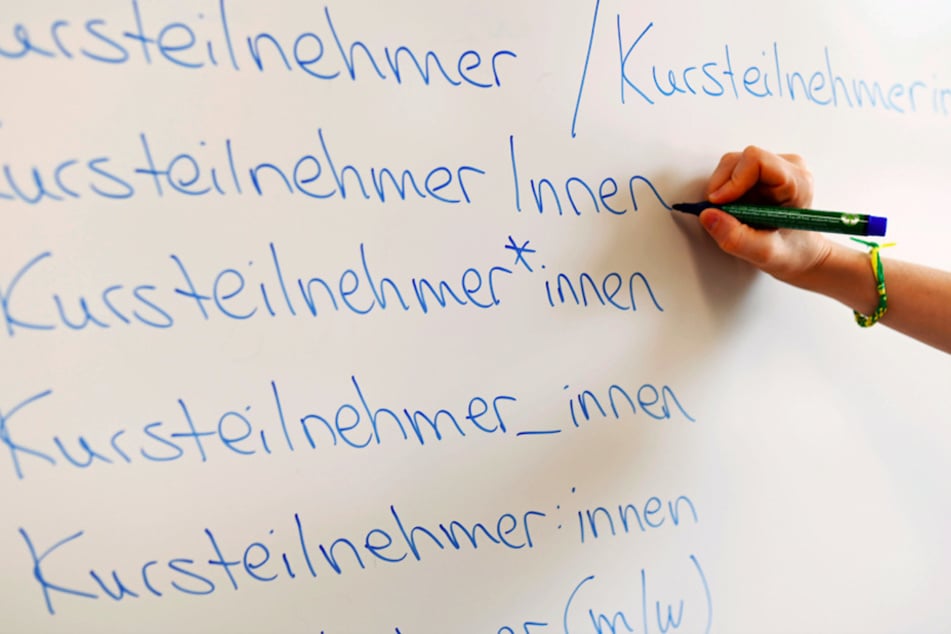 Kursteilnehmer / Kursteilnehmerin
KursteilnehmerInnen
Kursteilnehmer*innen
Kursteilnehmer_innen
Kursteilnehmer:innen
(m/w)